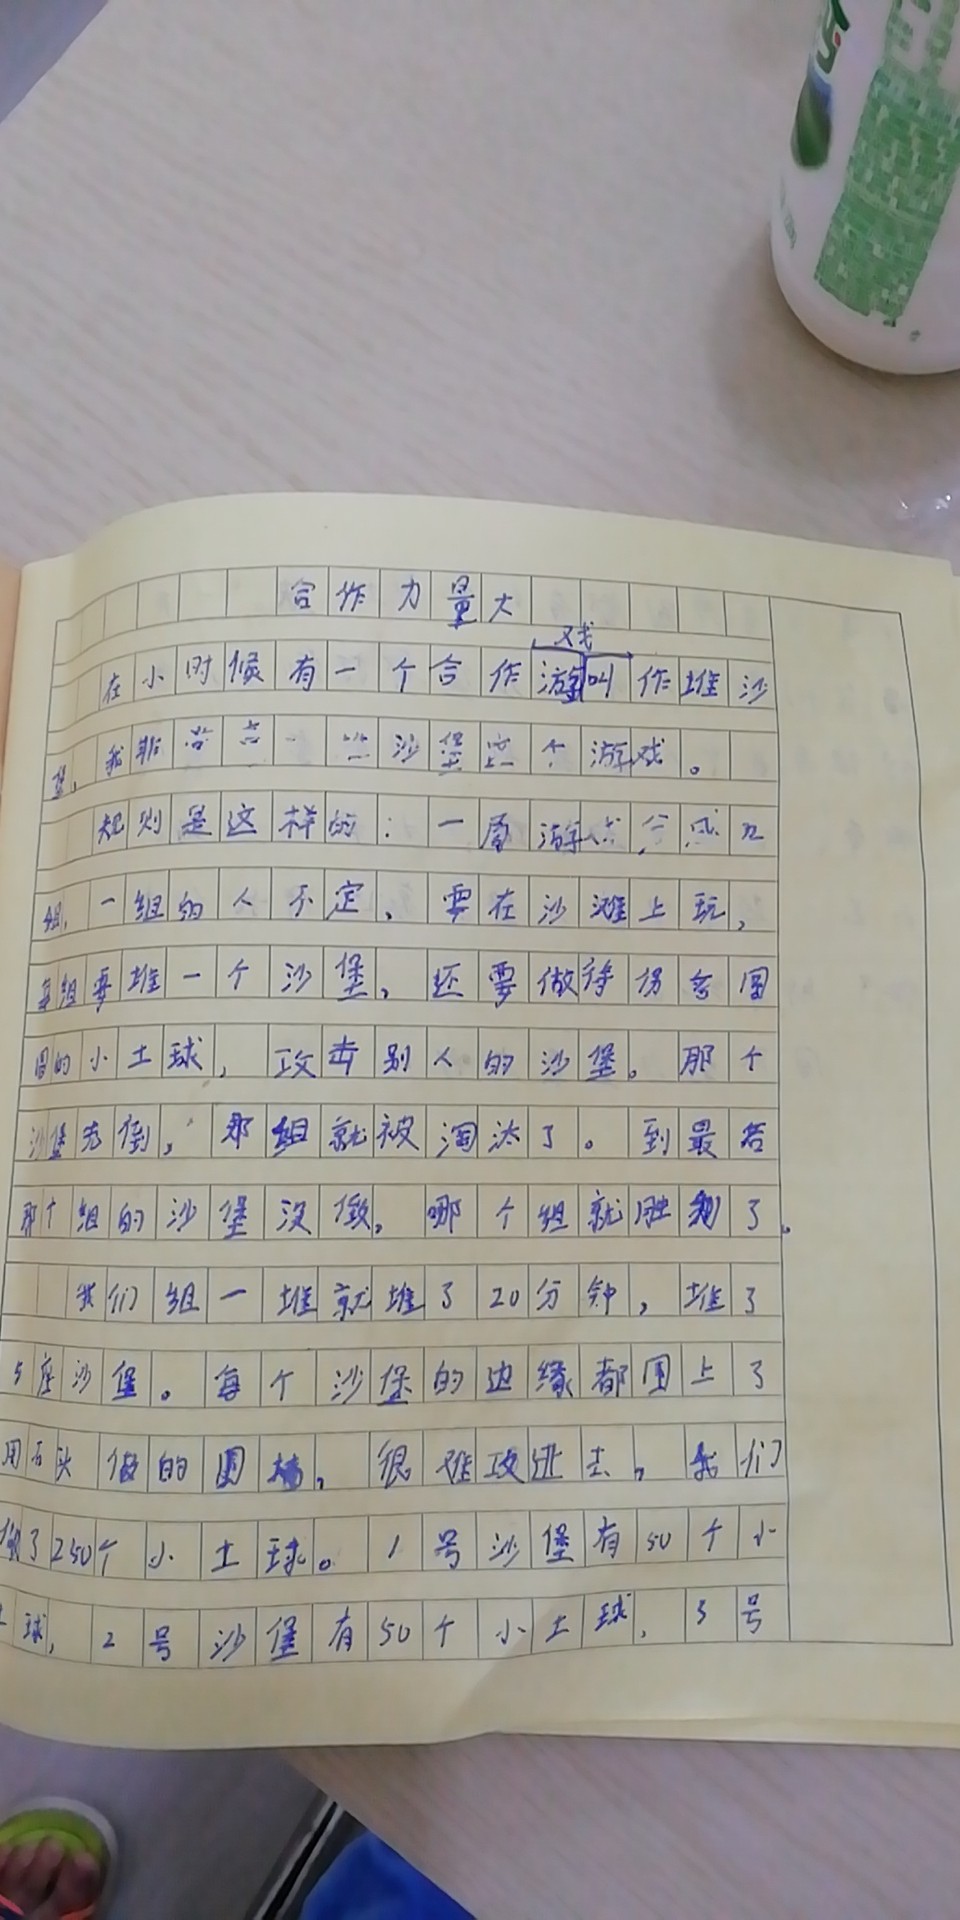 合作力量大
在小时候有一个合作游戏叫作堆沙
堡。我非常喜 沙堡这个游戏。
规则是这样的：一局游戏分成几
组，一组的人不定，要在沙滩上玩，
每组要堆一个沙堡，还要做 圆
圆的小土球，攻击别人的沙堡。那个
沙堡先倒，那组就被淘汰了。到最后
那个组的沙堡没倒，哪个组就胜利了。
我们组一堆就堆了20分钟，堆了
5座沙堡。每个沙堡的边缘都围上了
用石头做的围墙，很难攻进去，我们
做了250个小土球。1号沙堡有50个小
土球，2号沙堡有50个小土球，3号